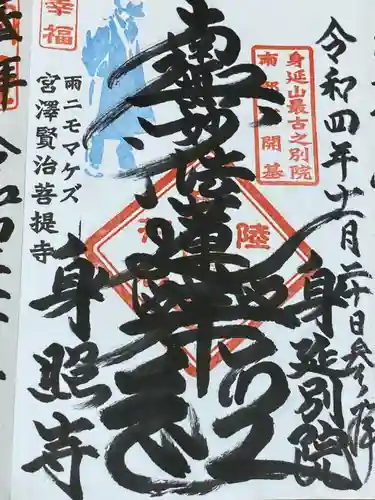 令和四年十一月二十日参拝
身延別院
身延山最古之別院
南部 開基
南無妙法蓮華経
陸
幸福
雨ニモマケズ
宮澤賢治菩提寺
身照寺